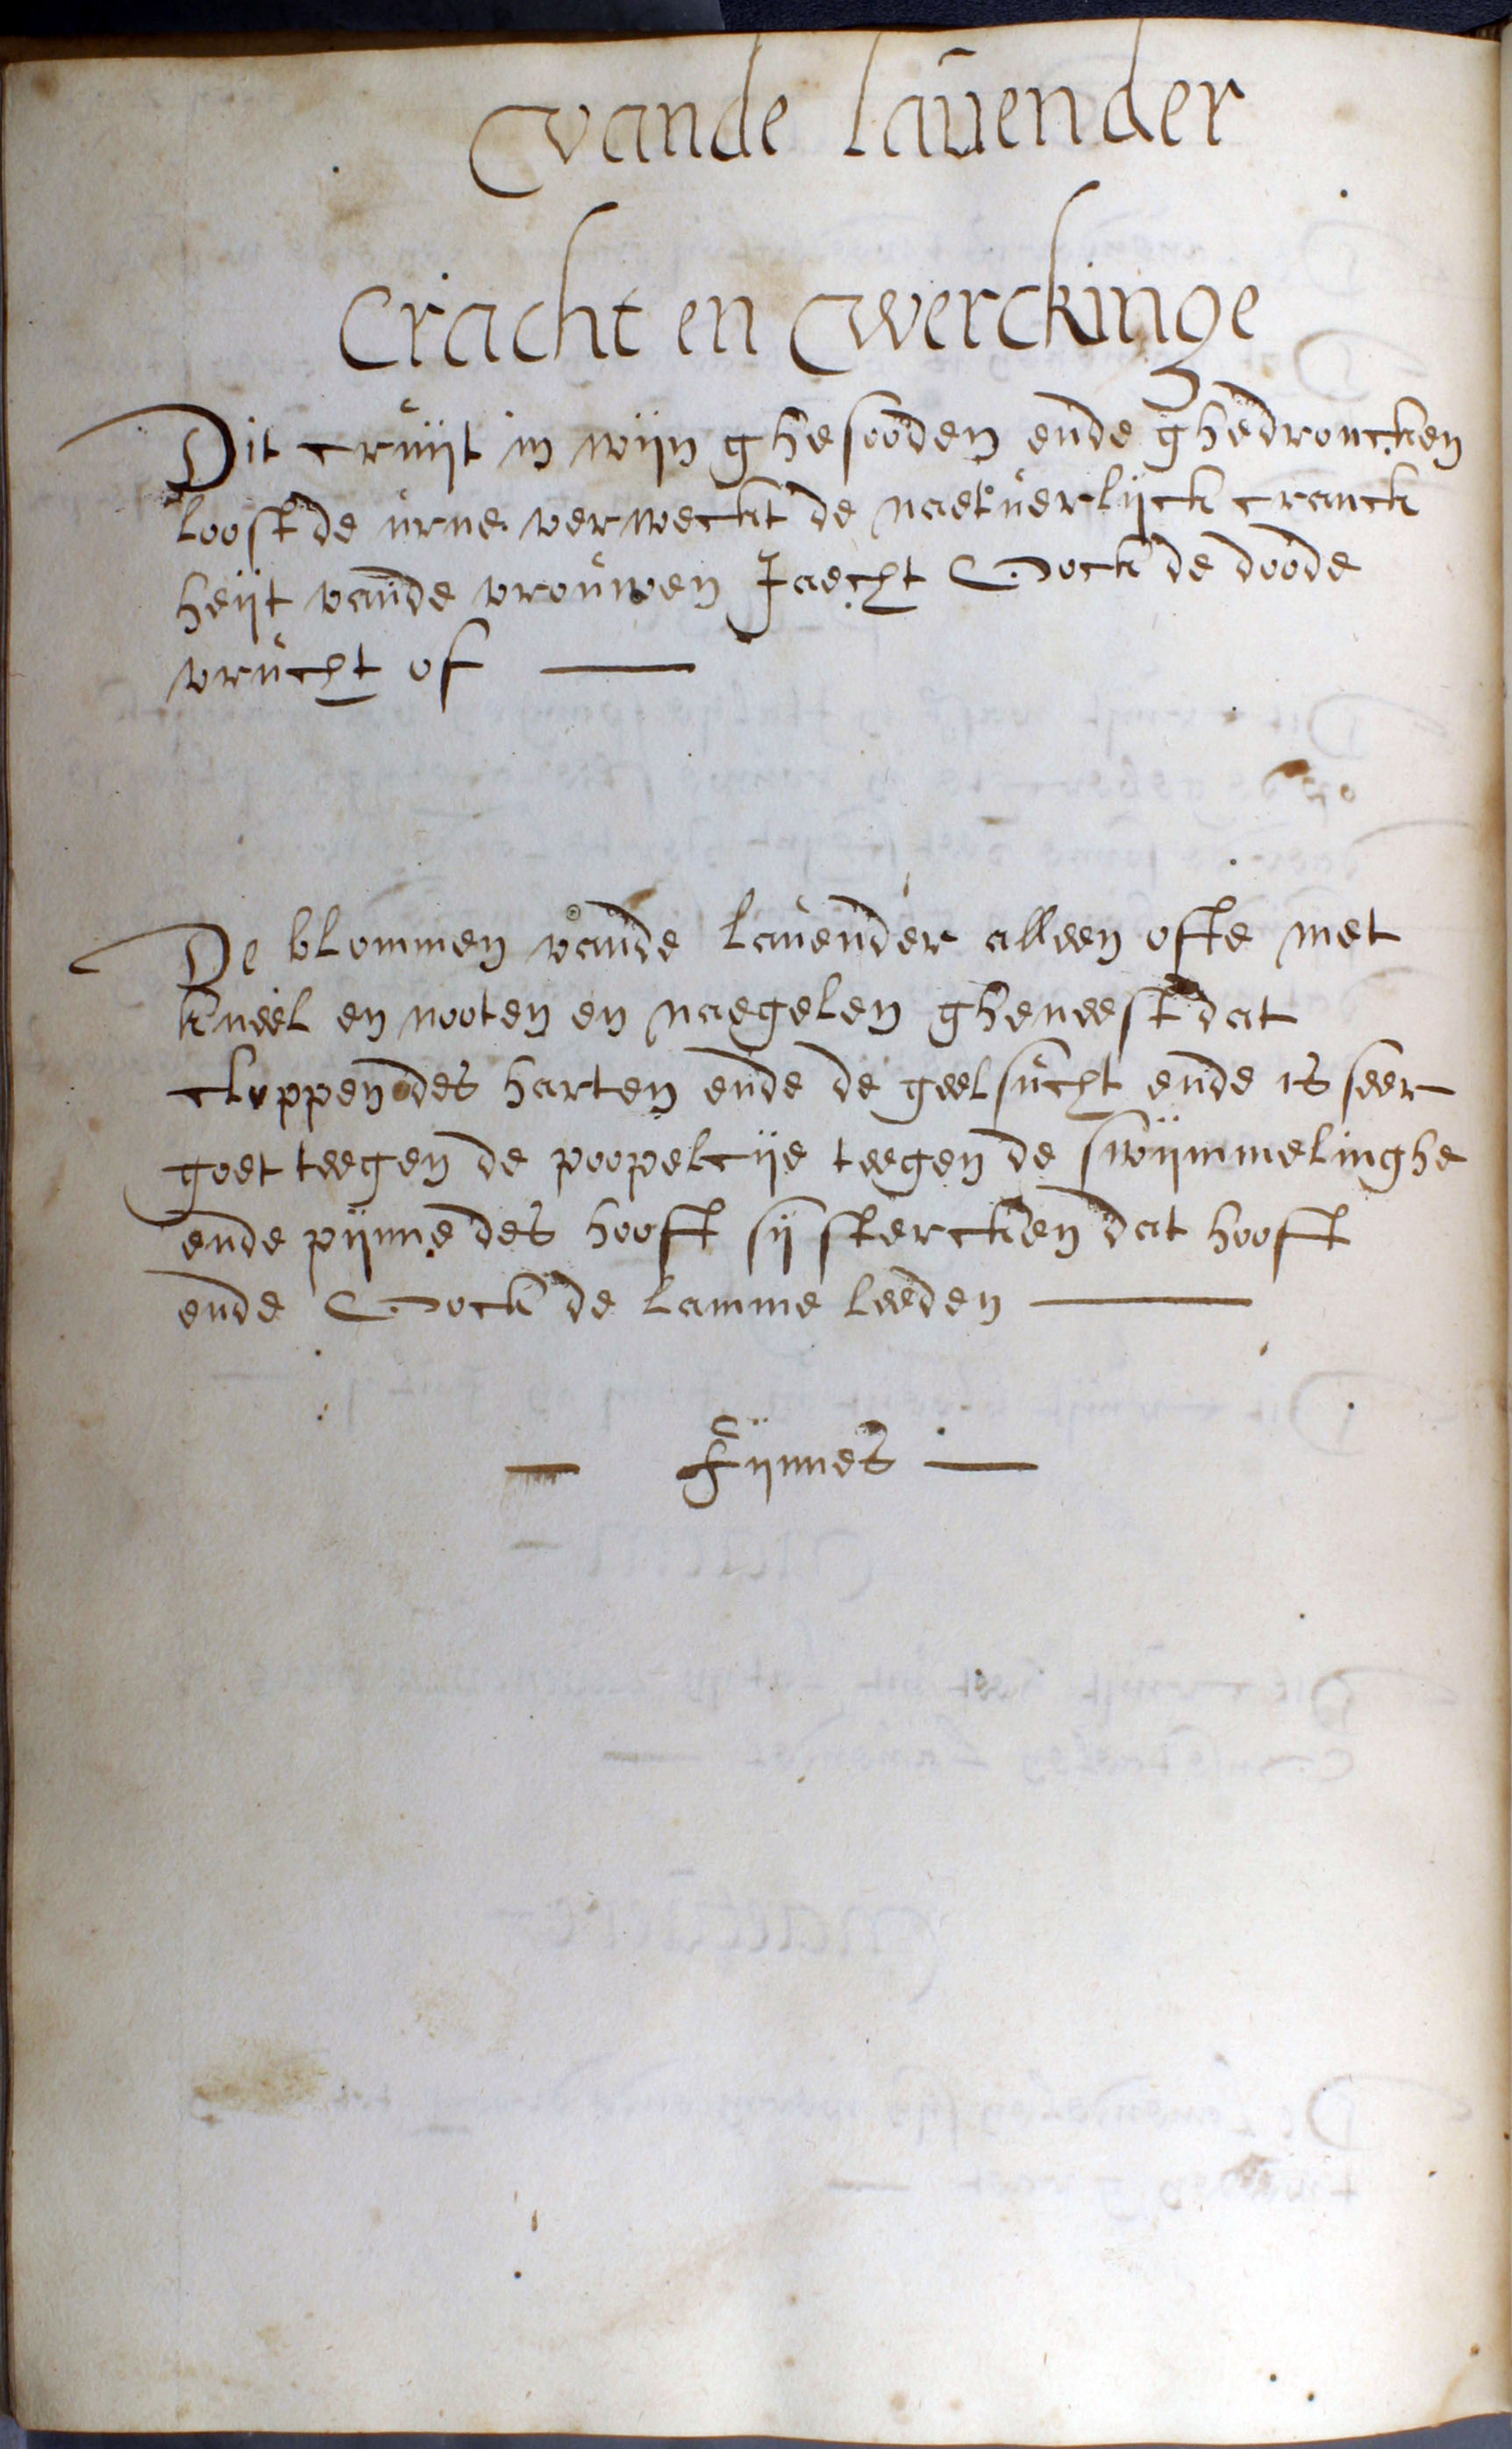 vande lauender
cracht en werckinge
Dit cruijt in wijn ghesooden ende ghedroncken
loost de urne verweckt de naetuerlijck cranck
heijt vande vrouwen Jaecht Oock de doode
vrucht of
De blommen vande lauender alleen ofte met
kneel en nooten en naegelen gheneest dat
cloppen des harten ende de geelsucht ende is seer
goet teegen de poopelcije teegen de swijmmelinghe
ende pijnne des hooft sij stercken dat hooft
ende Oock de lamme leeden
Fijnnes